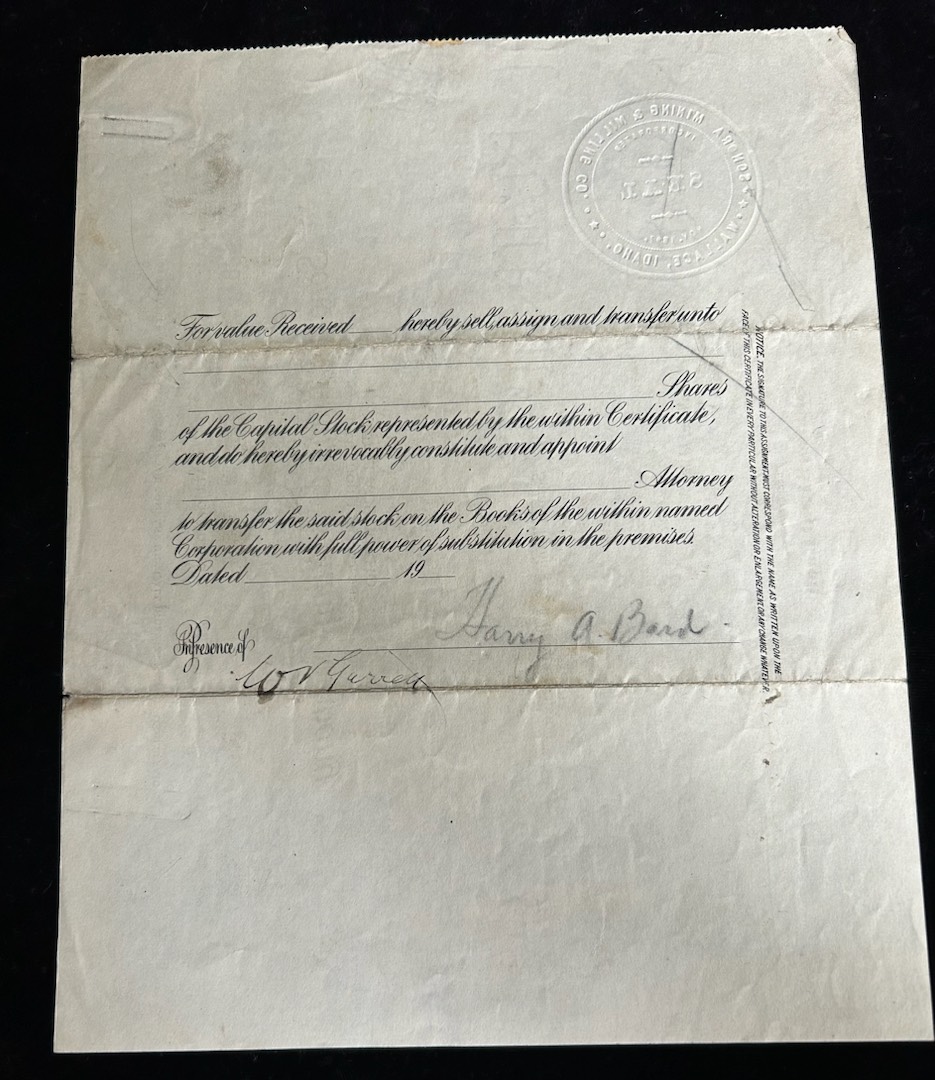 MINING & MILLING CO.
INCORPORATED
SEAL
WALLACE, IDAHO.
For value Received hereby sell, assign and transfer unto
Shares
of the Capital Stock represented by the within Certificate,
and do hereby irrevocably constitute and appoint
Attorney
to transfer the said stock on the Books of the within named
Corporation with full power of substitution in the premises.
Dated 19
In Presence of
Harry A. Bard
NOTICE. THE SIGNATURE TO THIS ASSIGNMENT MUST CORRESPOND WITH THE NAME AS WRITTEN UPON THE
FACE OF THIS CERTIFICATE IN EVERY PARTICULAR WITHOUT ALTERATION OR ENLARGEMENT, OR ANY CHANGE WHATEVER.